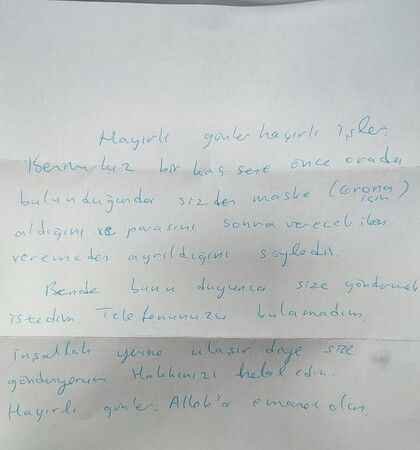 Hayırlı günler hayırlı işler.
bir kaç sene önce orada
bulunduğundan sizden maske (corona için)
aldığını ve parasını sonra verecek iken
veremeden ayrıldığını söyledi.
Bende bunu duyunca size göndermek
istedim Telefonunuzu bulamadım.
İnşallah yerine ulaşır diye size
gönderiyorum Hakkınızı helal edin.
Hayırlı günler. Allah'a emanet olun.